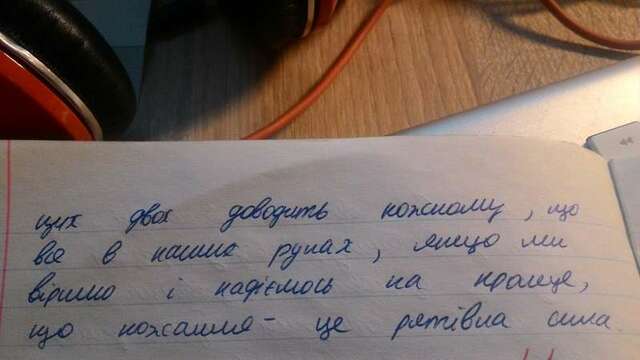 цих двох доводить кожному, що
все в наших руках, якщо ми
віримо і надіємось на краще,
що кохання - це рятівна сила.